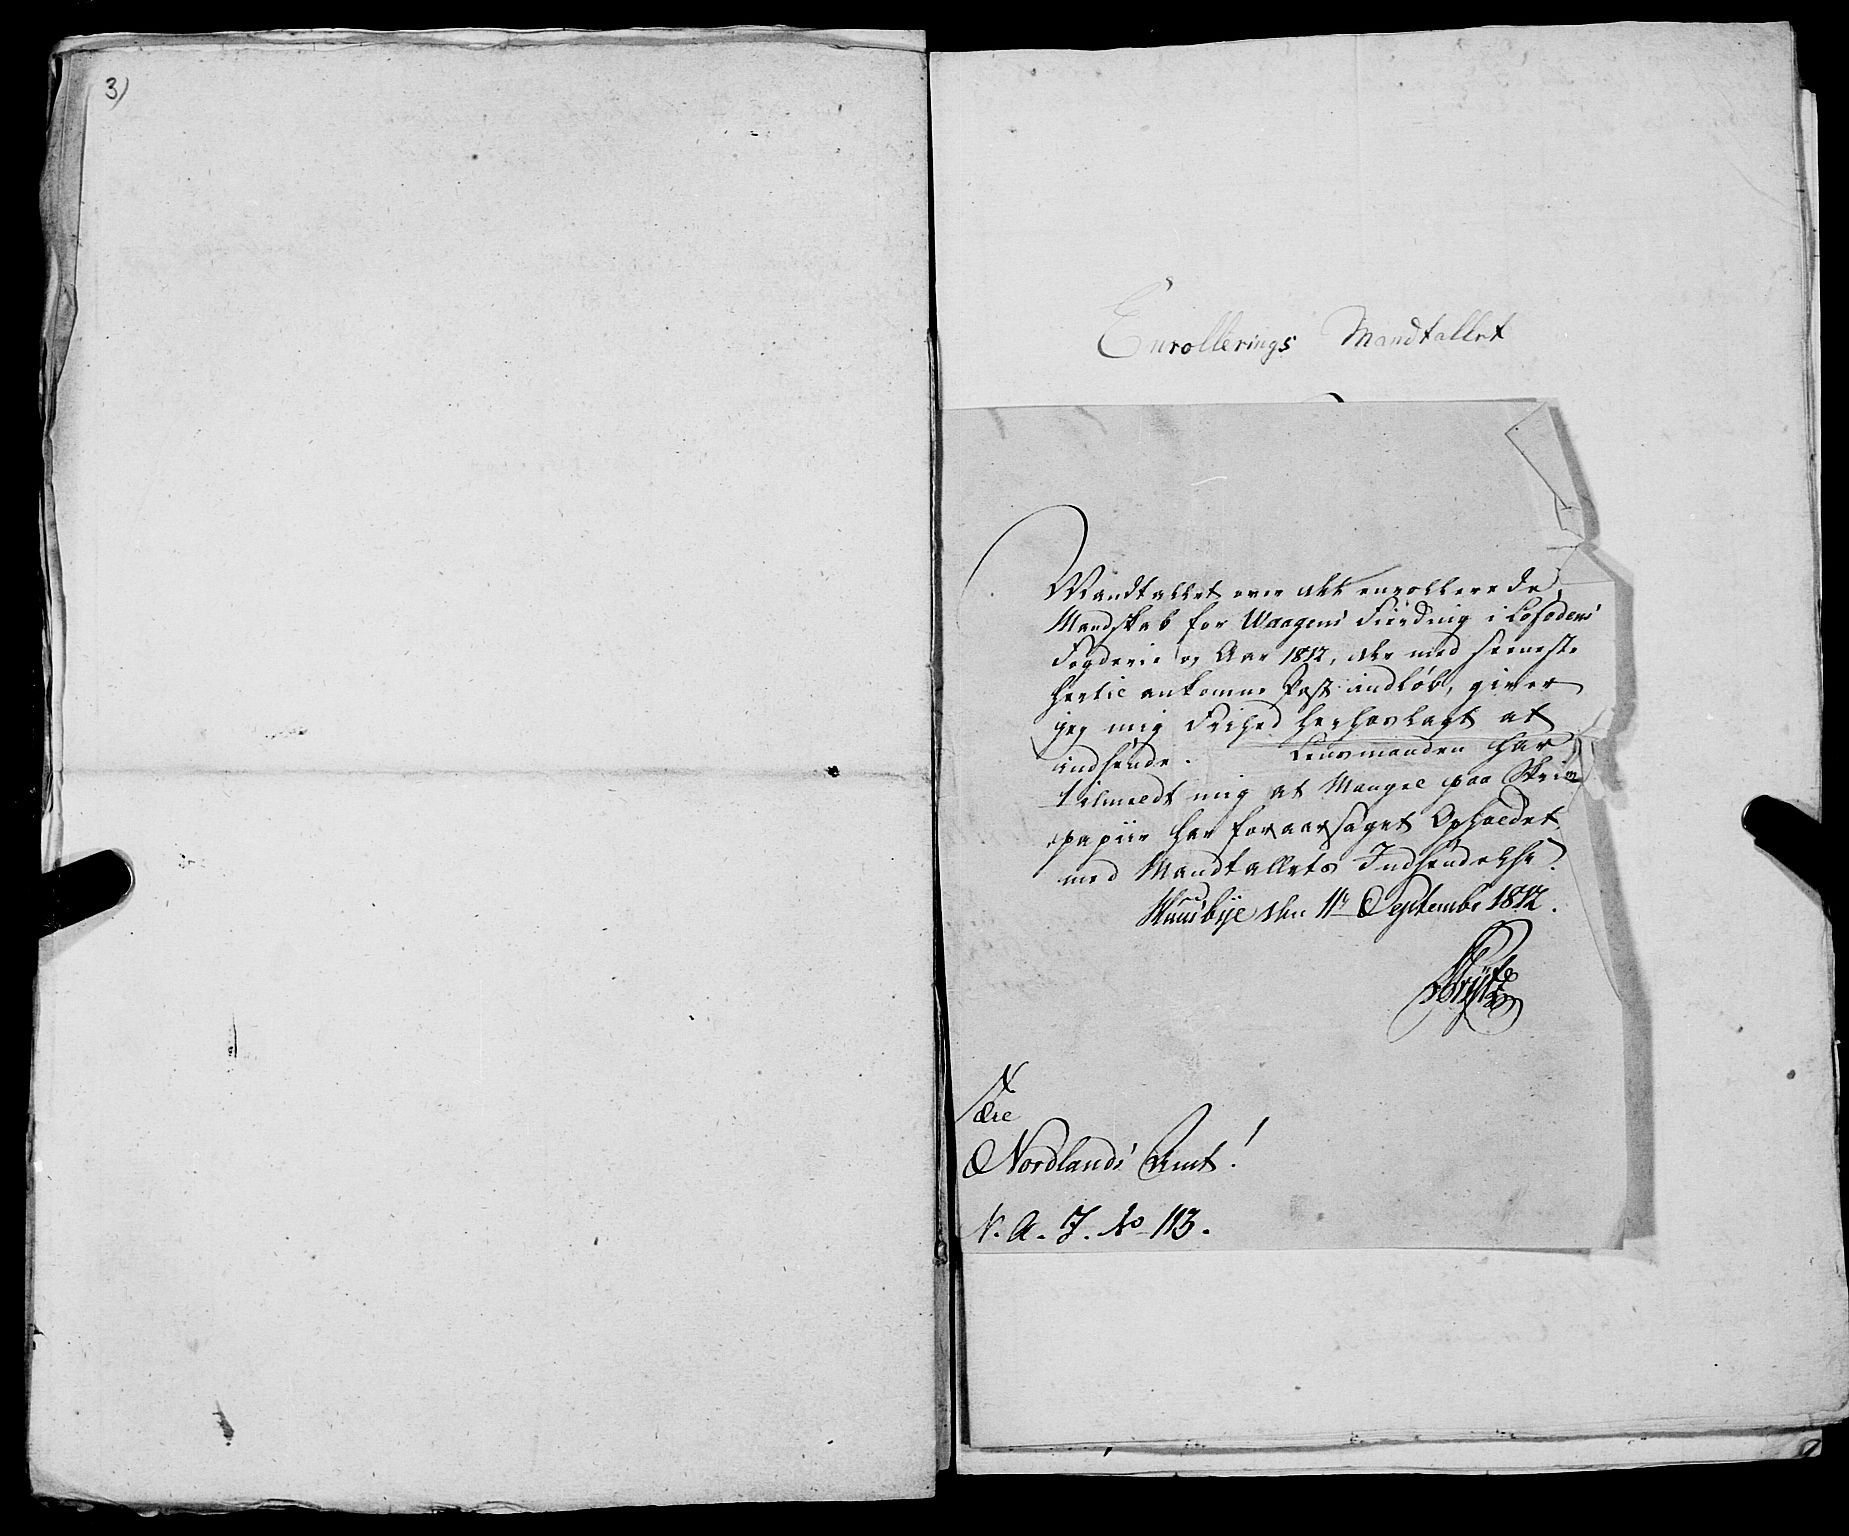 3)
Enrollerings Mandtallet
Mandtallet over det enrollerede
Mandskab for Waagens Fierding i Lofodens
Fogderie og Aar 1812, der med seeneste
hertil ankomne Post indløb, giver
jeg mig Frihed herhoslagt at
indsende. Lensmanden har
tilmeldt mig at Mangel paa Skriv
papiir har foraarsaget Opholdet
med Mandtallets Indsendelse.
Huusbye den 11te Septembr 1812.
Til
Nordlands Amt!
N. A. J. No 113.